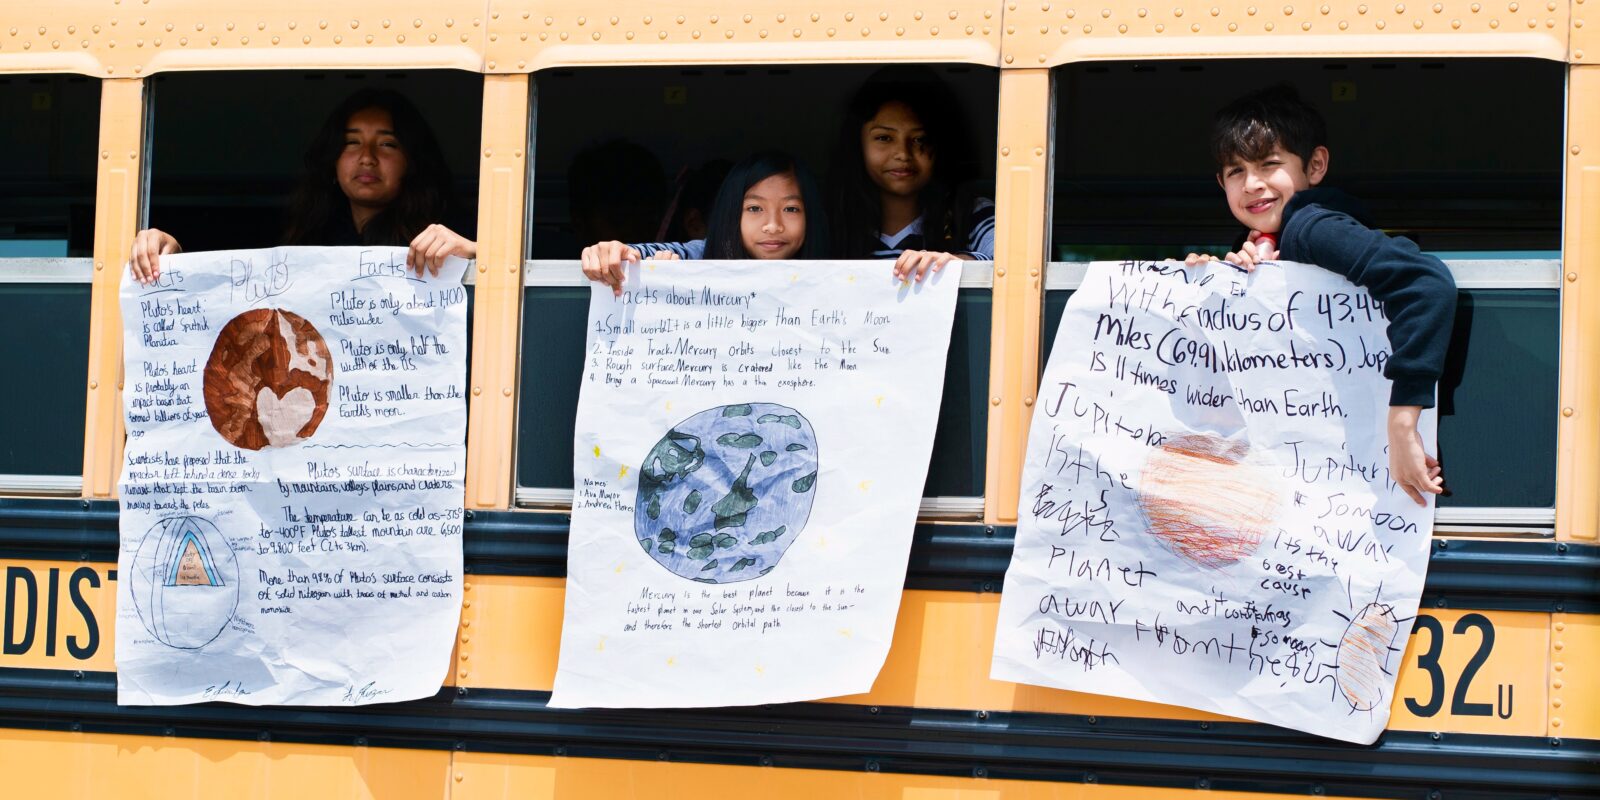 DIS
Facts
Pluto
Facts
Pluto's heart
is called Sputnik
Planitia
Pluto's heart
is probably an
impact basin that
formed billions of years
ago
Scientists have proposed that the
impactor left behind a dense rocky
remnant that kept the basin from
moving towards the poles
Pluto is only about 1,400
Miles wider
Pluto is only half the
width of the U.S.
Pluto is smaller than the
Earth's moon.
Pluto's surface is characterized
by mountains, valleys plains, and craters.
The temperature can be as cold as -375°
to -400°F Pluto's tallest mountain are 6,500
to 9,800 feet (2 to 3km).
More than 98% of Pluto's surface consists
of solid nitrogen with traces of and carbon
monoxide
Facts about Murcury*
1. Small world It is a little bigger than Earth's Moon
2. Inside Track. Mercury orbits closest to the Sun
3. Rough surface, Mercury is cratered like the Moon
4. Bring a Spacesuit Mercury has a thin exosphere.
Names
1. Ava Mayor
2. Andrea Flores
Mercury is the best planet because it is the
fastest planet in our Solar System, and the closest to the sun-
and therefore the shortest orbital path
With radius of 43,44
Miles (69,911 kilometers), Jupi
is 11 times wider than Earth.
Jupiter
is the
5
Planet
away
From the sun
Jupiter i
so moon
away
its the
best
cause
and it
32U